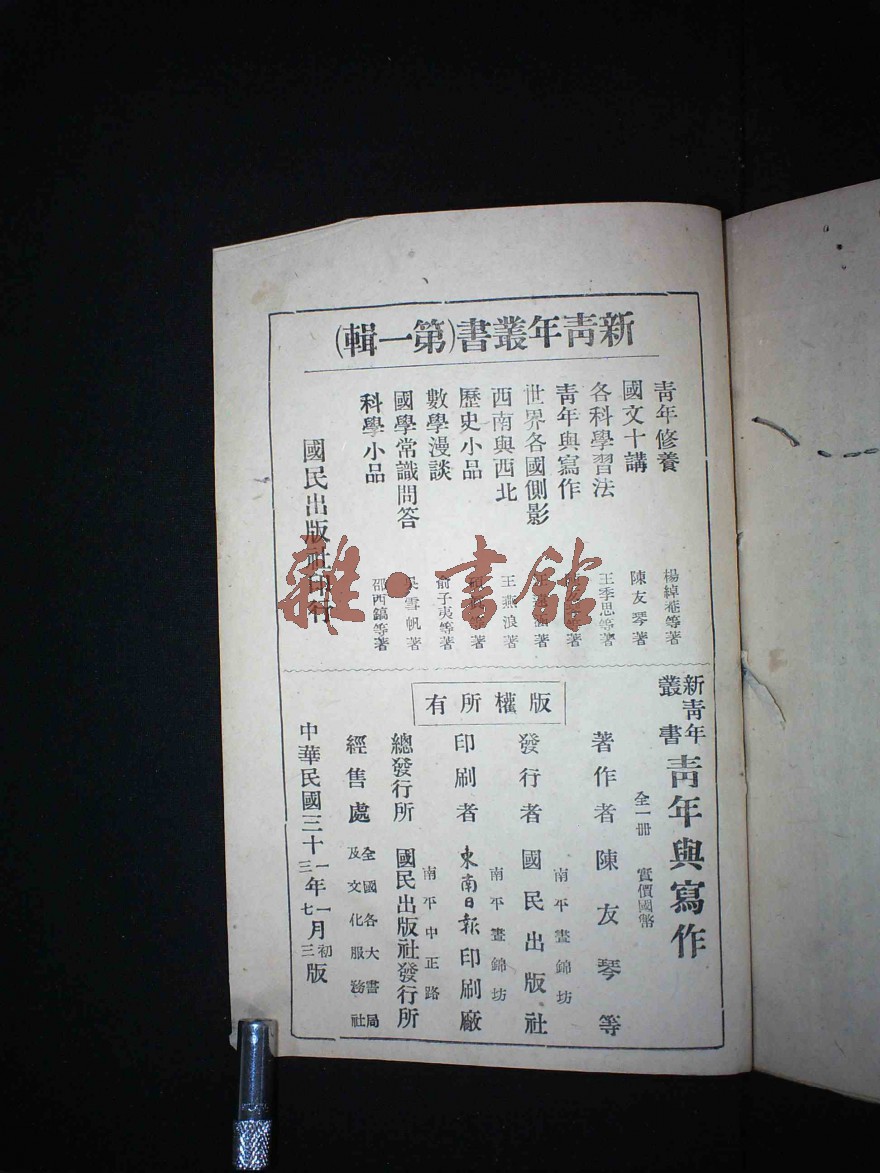 新青年叢書(第一輯)
青年修養 楊綽菴等著
國文十講 陳友琴著
各科學習法 王季思等著
青年與寫作
世界各國側影
西南與西北 王燕浪著
歷史小品
數學漫談 俞子夷等著
國學常識問答 吳雪帆著
科學小品 邵西鎬等著
國民出版社印行
新青年叢書 青年與寫作
全一冊 實價國幣
版權所有
著作者 陳友琴等
南平晝錦坊
發行者 國民出版社
南平晝錦坊
印刷者 東南日報印刷廠
南平中正路
總發行所 國民出版社發行所
經售處 全國各大書局及文化服務社
中華民國三十一年一月初版
三 七 三
雜·書館